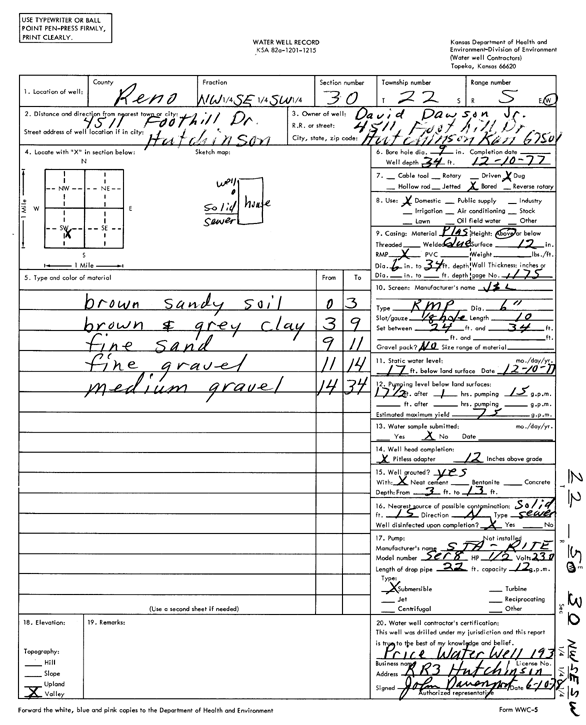 USE TYPEWRITER OR BALL
POINT PEN-PRESS FIRMLY,
PRINT CLEARLY.
WATER WELL RECORD
KSA 82a-1201-1215
Kansas Department of Health and
Environment-Division of Environment
(Water well Contractors)
Topeka, Kansas 66620
1. Location of well: County Reno Fraction NW 1/4 SE 1/4 SW 1/4 Section number 30 Township number T 22 S Range number R 5 E/W
2. Distance and direction from nearest town or city:
Street address of well location if in city: 4511 Foothill Dr. Hutchinson
3. Owner of well: David Dawson Jr.
R.R. or street: 4511 Foothill Dr
City, state, zip code: Hutchinson Kan 67501
4. Locate with "X" in section below: Sketch map:
N
NW NE
W E
SW SE
X
S
1 Mile
1 Mile
well
solid
sewer
house
5. Type and color of material From To
brown sandy soil 0 3
brown & grey clay 3 9
fine sand 9 11
fine gravel 11 14
medium gravel 14 34
(Use a second sheet if needed)
6. Bore hole dia. 9 in. Completion date
Well depth 34 ft. 12-10-77
7. Cable tool Rotary Driven X Dug
Hollow rod Jetted X Bored Reverse rotary
8. Use: X Domestic Public supply Industry
Irrigation Air conditioning Stock
Lawn Oil field water Other
9. Casing: Material PLAS Height: Above or below
Threaded Welded Glue Surface 12 in.
RMP X PVC Weight lbs./ft.
Dia. 6 in. to 34 ft. depth Wall Thickness: inches or
Dia. in. to ft. depth gage No. .175
10. Screen: Manufacturer's name
Type RMP Dia. 6"
Slot/gauze 1/8 hole Length 10
Set between 24 ft. and 34 ft.
ft. and ft.
Gravel pack? NO Size range of material
11. Static water level: mo./day/yr.
17 ft. below land surface Date 12-10-77
12. Pumping level below land surfaces:
17 1/2 ft. after 1 hrs. pumping 15 g.p.m.
ft. after hrs. pumping g.p.m.
Estimated maximum yield 75 g.p.m.
13. Water sample submitted: mo./day/yr.
Yes X No Date
14. Well head completion:
X Pitless adapter 12 Inches above grade
15. Well grouted? yes
With: X Neat cement Bentonite Concrete
Depth: From 3 ft. to 13 ft.
16. Nearest source of possible contamination: Solid
ft. 15 Direction N Type sewer
Well disinfected upon completion? X Yes No
17. Pump: Not installed
Manufacturer's name STA-RITE
Model number Ser 8 HP 1/2 Volts 230
Length of drop pipe 22 ft. capacity 12 g.p.m.
Type:
X Submersible Turbine
Jet Reciprocating
Centrifugal Other
18. Elevation:
Topography:
Hill
Slope
Upland
X Valley
19. Remarks:
20. Water well contractor's certification:
This well was drilled under my jurisdiction and this report
is true to the best of my knowledge and belief.
Price Water Well 193
Business name License No.
Address RR3 Hutchinson
Signed John Davenport Date 6-10-78
Authorized representative
Forward the white, blue and pink copies to the Department of Health and Environment
Form WWC-5
22 - 5W 30 NW SE SW
T R E Sec 1/4 1/4 1/4